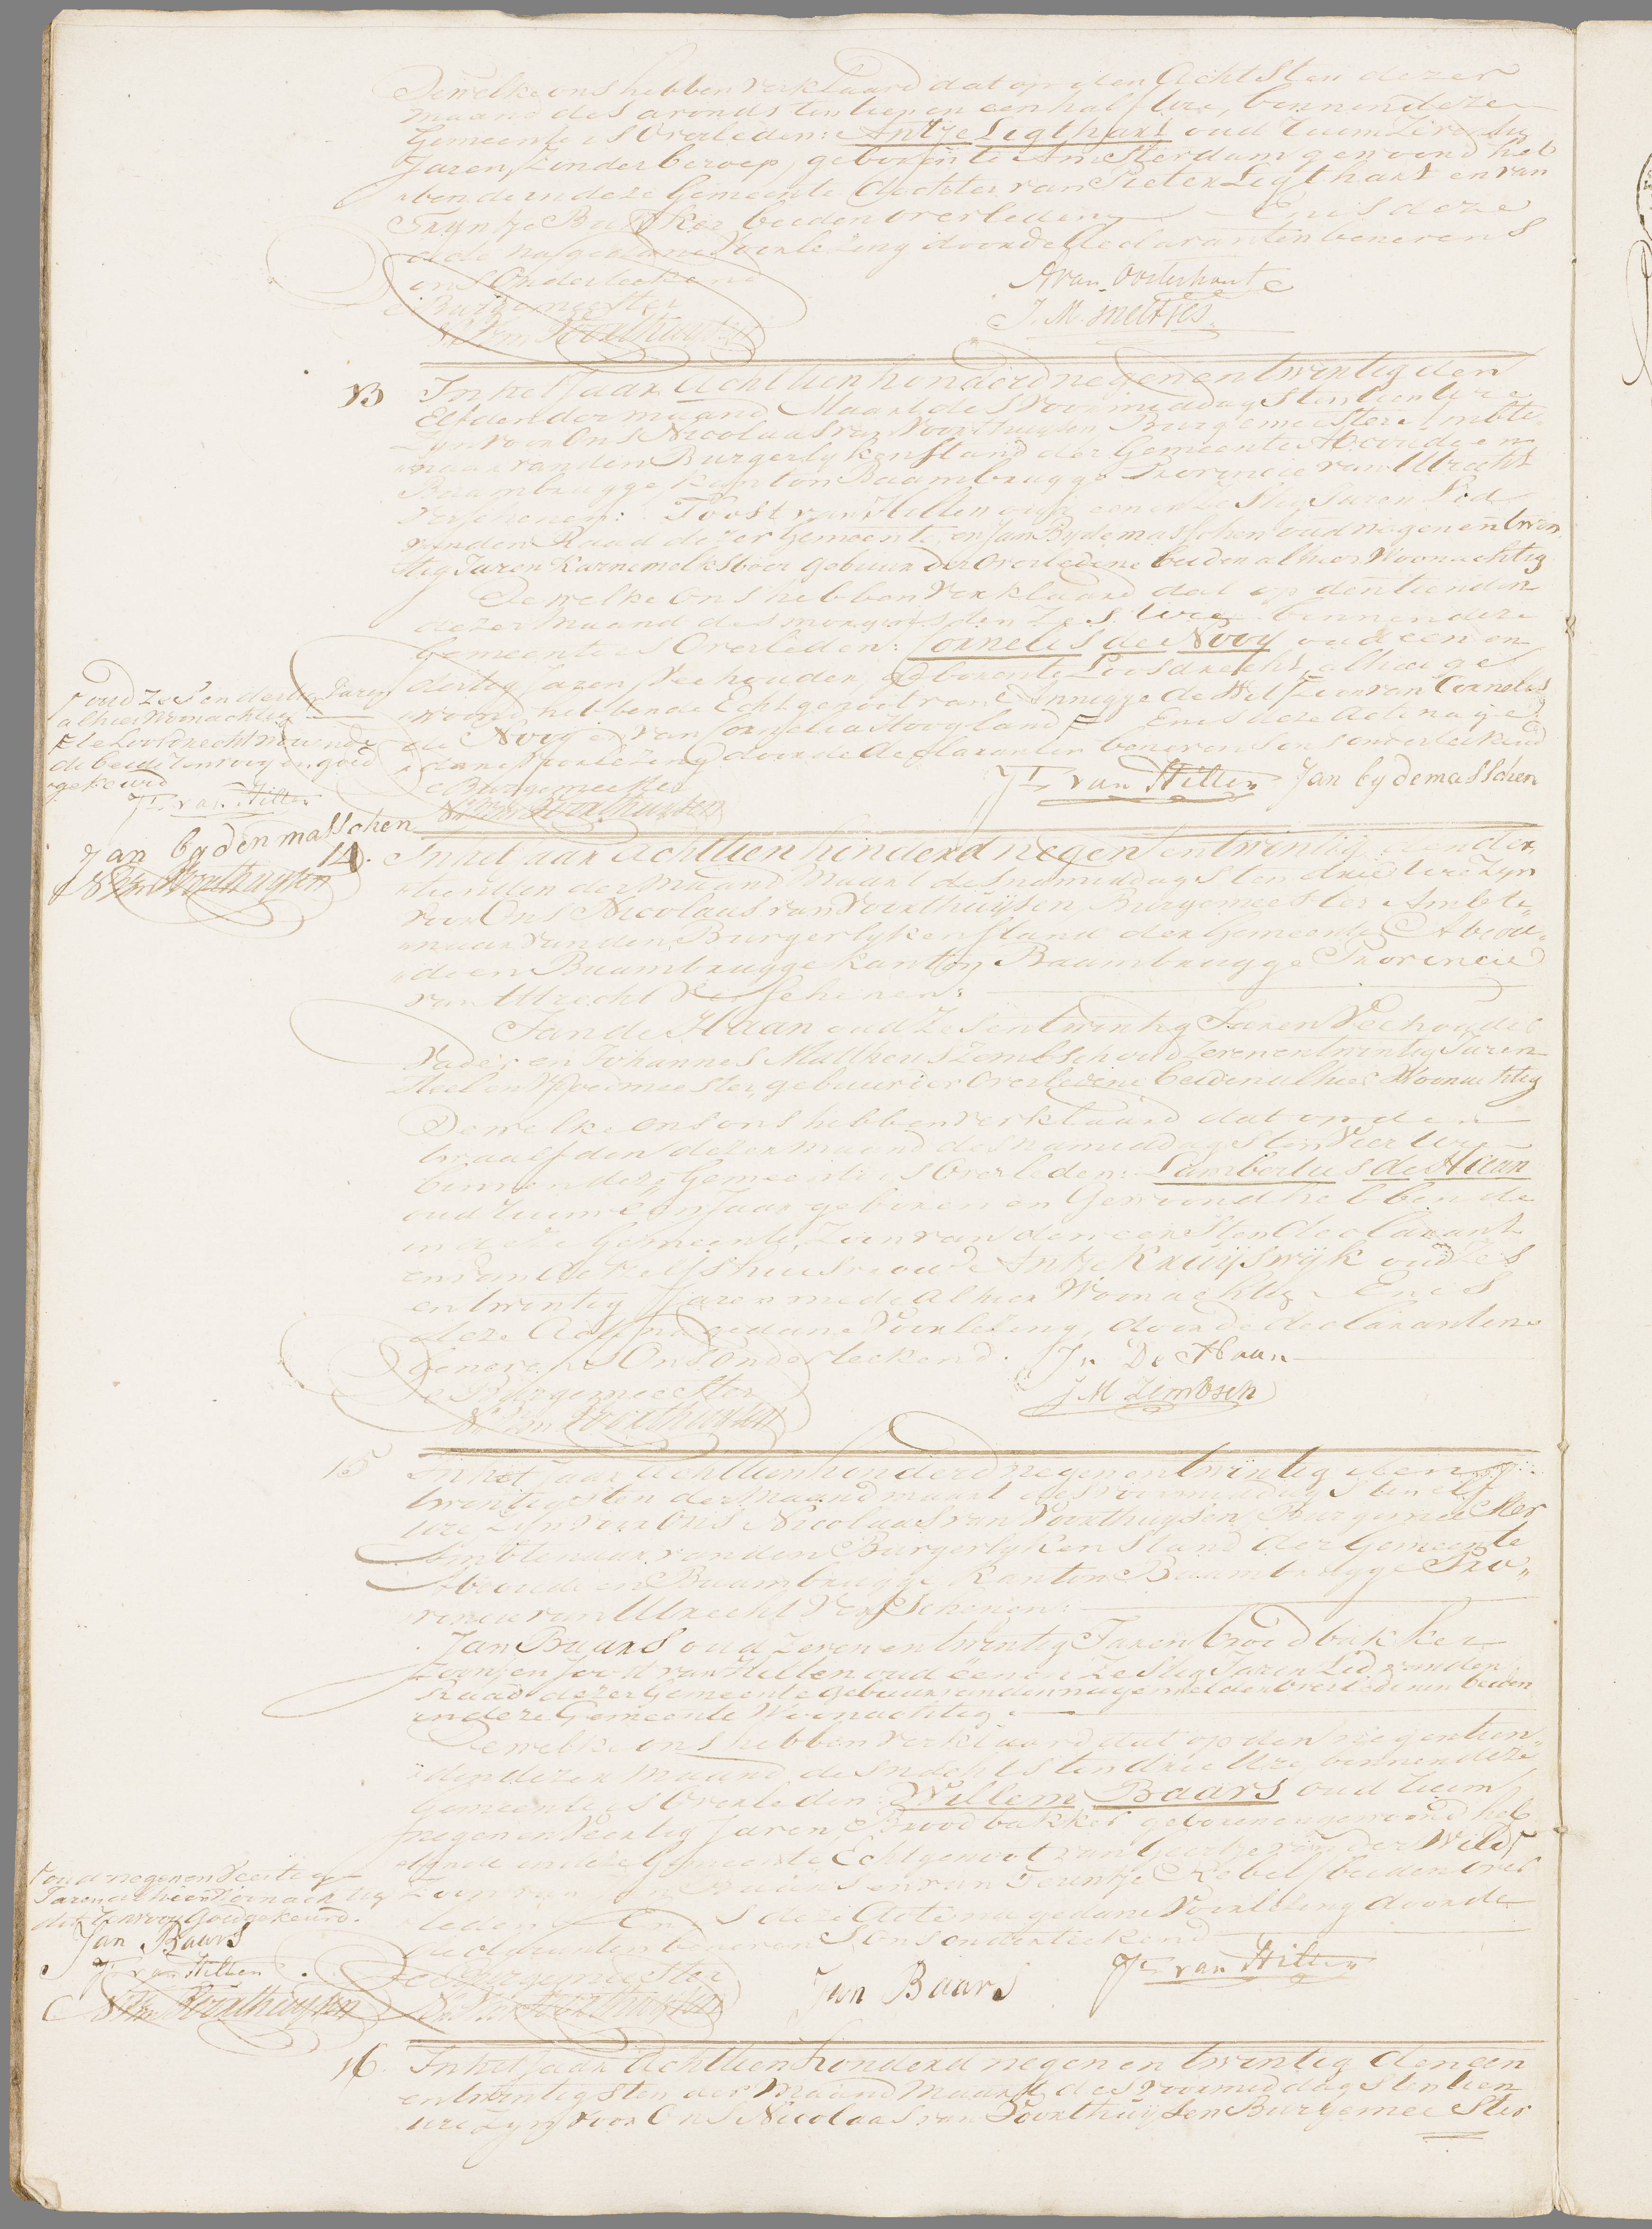 Dewelke ons hebben verklaard dat op den Achtsten dezer
maand des avonds ten tien en een half Ure, binnen deze
Gemeente is Overleden: Antje Ligthart oud ruim
Jaren, zonder beroep, geboren te Amsterdam gewoond heb
bende in deze Gemeente dochter van Pieter Ligthart en van
Tryntje Bakker beiden overleden En is deze
Acte na gedane Voorlezing door de Declaranten benevens
ons Onderteekend
A van Oosterhout
De Burgemeester
J. M. Smeltjes
N. van Voorthuijsen
13 In het Jaar Achttien honderd negen en twintig den
Elfden der maand Maart des Voormiddags ten tien Ure
Zyn voor Ons Nicolaas van Voorthuijsen Burgemeester Ambte
naar van den Burgerlyken Stand der Gemeente Abcoude en
Baambrugge Kanton Baambrugge Provincie van Utrecht
Verschenen: Joost van Hilten oud een en Zestig Jaren Lid
van den Raad dezer Gemeente, en Jan Bydemasschen oud negen en twin
tig Jaren Karnemelksboer Gebuur der Overledene beiden alhier Woonachtig
Dewelke Ons hebben Verklaard dat op den tienden
dezer maand des morgens ten Zes Ure binnen deze
Gemeente is Overleden: Cornelis de Nooy oud een en
dertig Jaren Veehouder, Geboren te Loosdrecht alhier ge
woond hebbende Echtgenoot van Annigje de Wit Zoon van Cornelis
de Nooy en van Cornelia Hoogland En is deze Acte na ge
dane Voorlezing door de declaranten benevens ons onderteekend
De Burgemeester
Jt van Hilten Jan bydemasschen
N. van Voorthuijsen
oud Zes en dertig Jaren
alhier Woonachtig
te Loosdrecht Woonende
de beide renvooyen goed
gekeurd
Jt van Hilten
Jan bydenmasschen
N. van Voorthuijsen
14. In het Jaar Achttien honderd negen en twintig den der
tienden der maand Maart des namiddags ten drie Ure Zyn
voor Ons Nicolaas van Voorthuijsen, Burgemeester Ambte
naar van den Burgerlyken Stand der Gemeente Abcou
de en Baambrugge kanton Baambrugge Provincie
van Utrecht Verschenen:
Jan de Haan oud Zes en twintig Jaren Veehouder
Vader en Johannes Mattheus Zembsch oud Zeven en twintig Jaren
Heel en Vroedmeester, gebuur der Overledene beiden alhier Woonachtig
Dewelke ons ons hebben verklaard dat op den
twaalfden dezer maand des namiddags ten Vier Ure
binnen deze Gemeente is Overleden: Lambertus de Haan
oud ruim een Jaar geboren en Gewoond hebbende
in deze Gemeente, Zoon van den eersten declarant
en van deszelfs huisvrouw Antje Kruijswijk oud Zes
en twintig Jaren mede alhier Woonachtig En is
deze Acte na gedane Voorlezing, door de declaranten
benevens Ons Onderteekend.
Jn De Haan
De Burgemeester
J M Zembsch
N. van Voorthuijsen
15 In het Jaar Achttien honderd negen en twintig den
twintigsten der Maand maart des Voormiddags ten elf
Ure Zyn voor Ons Nicolaas van Voorthuijsen Burgemeester
Ambtenaar van den Burgerlyken Stand der Gemeente
Abcoude en Baambrugge Kanton Baambrugge Pro
vincie van Utrecht Verschenen:
Jan Baars oud Zeven en twintig Jaren broodbakker
Zoon, en Joost van Hilten oud een en Zestig Jaren Lid van den
Raad dezer Gemeente Gebuur van den nagemelden Overledenen beiden
in deze Gemeente Woonachtig
Dewelke ons hebben Verklaard dat op den negentien
den dezer Maand des nachts ten drie Ure binnen deze
Gemeente is Overleden Willem Baars oud ruim
negen en Veertig Jaren, Broodbakker geboren en gewoond heb
bende in deze Gemeente Echtgenoot van Geertje van der Wild
Zoon van Baars en van Teuntje Rebel beiden over
leden En is deze Acte na gedane Voorlezing door de
declaranten benevens ons onderteekend
De Burgemeester
Jan Baars Jt van Hilten
N. van Voorthuijsen
oud negen en Veertig
Jaren alhier Woonachtig
dit renvooy Goedgekeurd.
Jan Baars
Jt van Hilten
N. van Voorthuijsen
16 In het Jaar Achttien honderd negen en twintig den een
en twintigsten der Maand Maart des voormiddags ten tien
ure Zyn voor Ons Nicolaas van Voorthuijsen Burgemeester